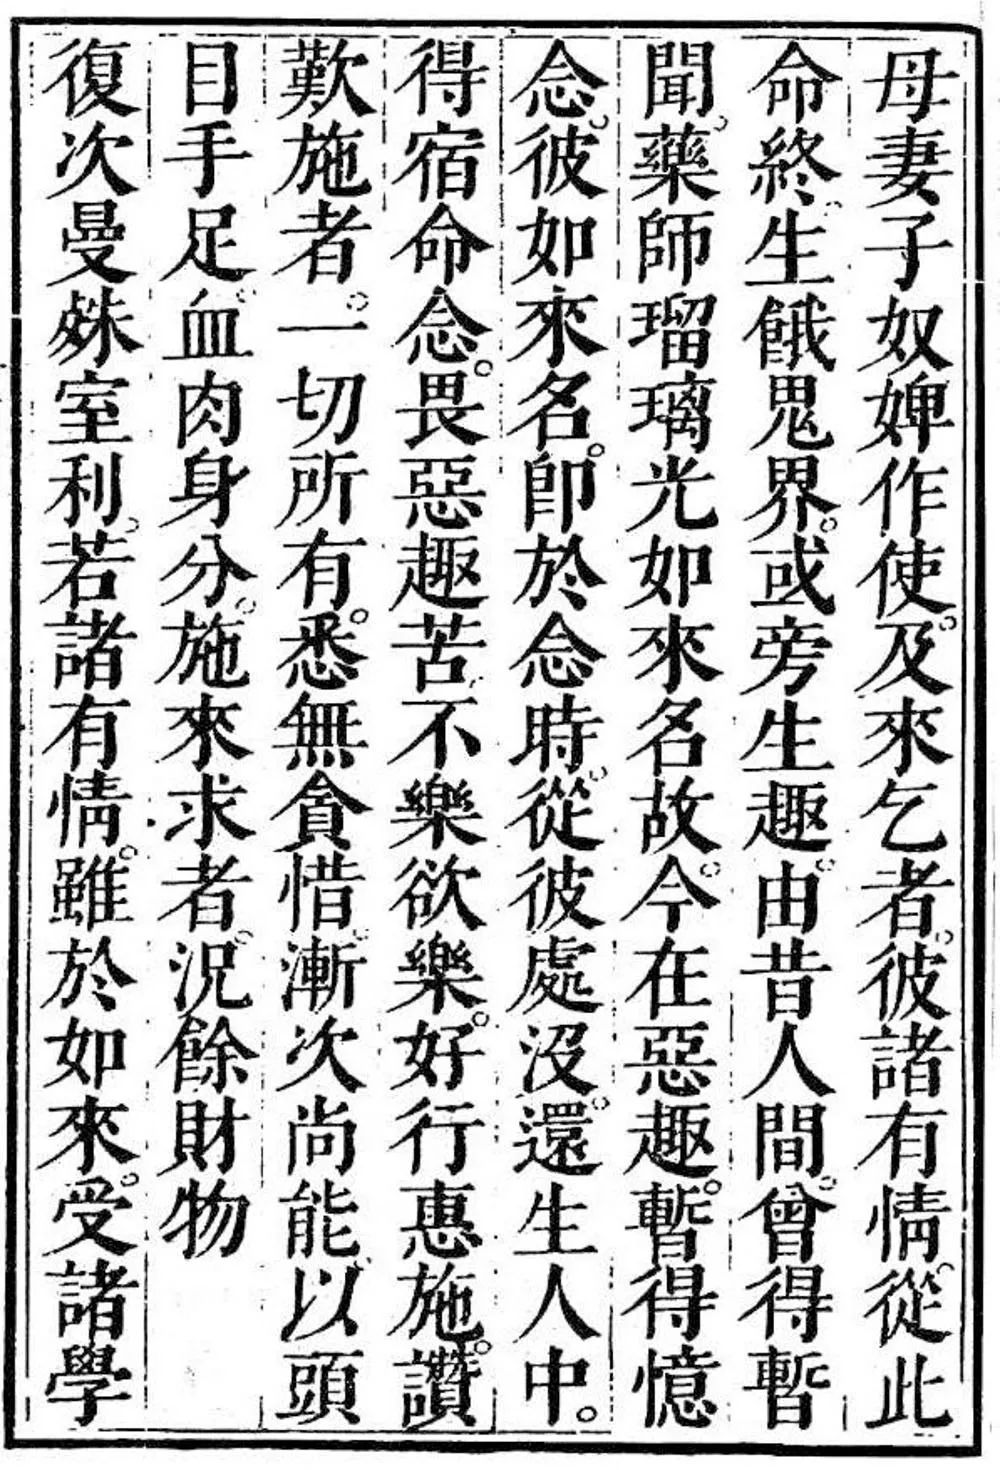 母妻子奴婢作使。及來乞者。彼諸有情。從此
命終。生餓鬼界。或旁生趣。由昔人間。曾得暫
聞。藥師瑠璃光如來名故。今在惡趣。暫得憶
念。彼如來名。卽於念時。從彼處沒。還生人中。
得宿命念。畏惡趣苦。不樂欲樂。好行惠施。讚
歎施者。一切所有。悉無貪惜。漸次尚能。以頭
目手足。血肉身分。施來求者。況餘財物
復次曼殊室利。若諸有情。雖於如來。受諸學